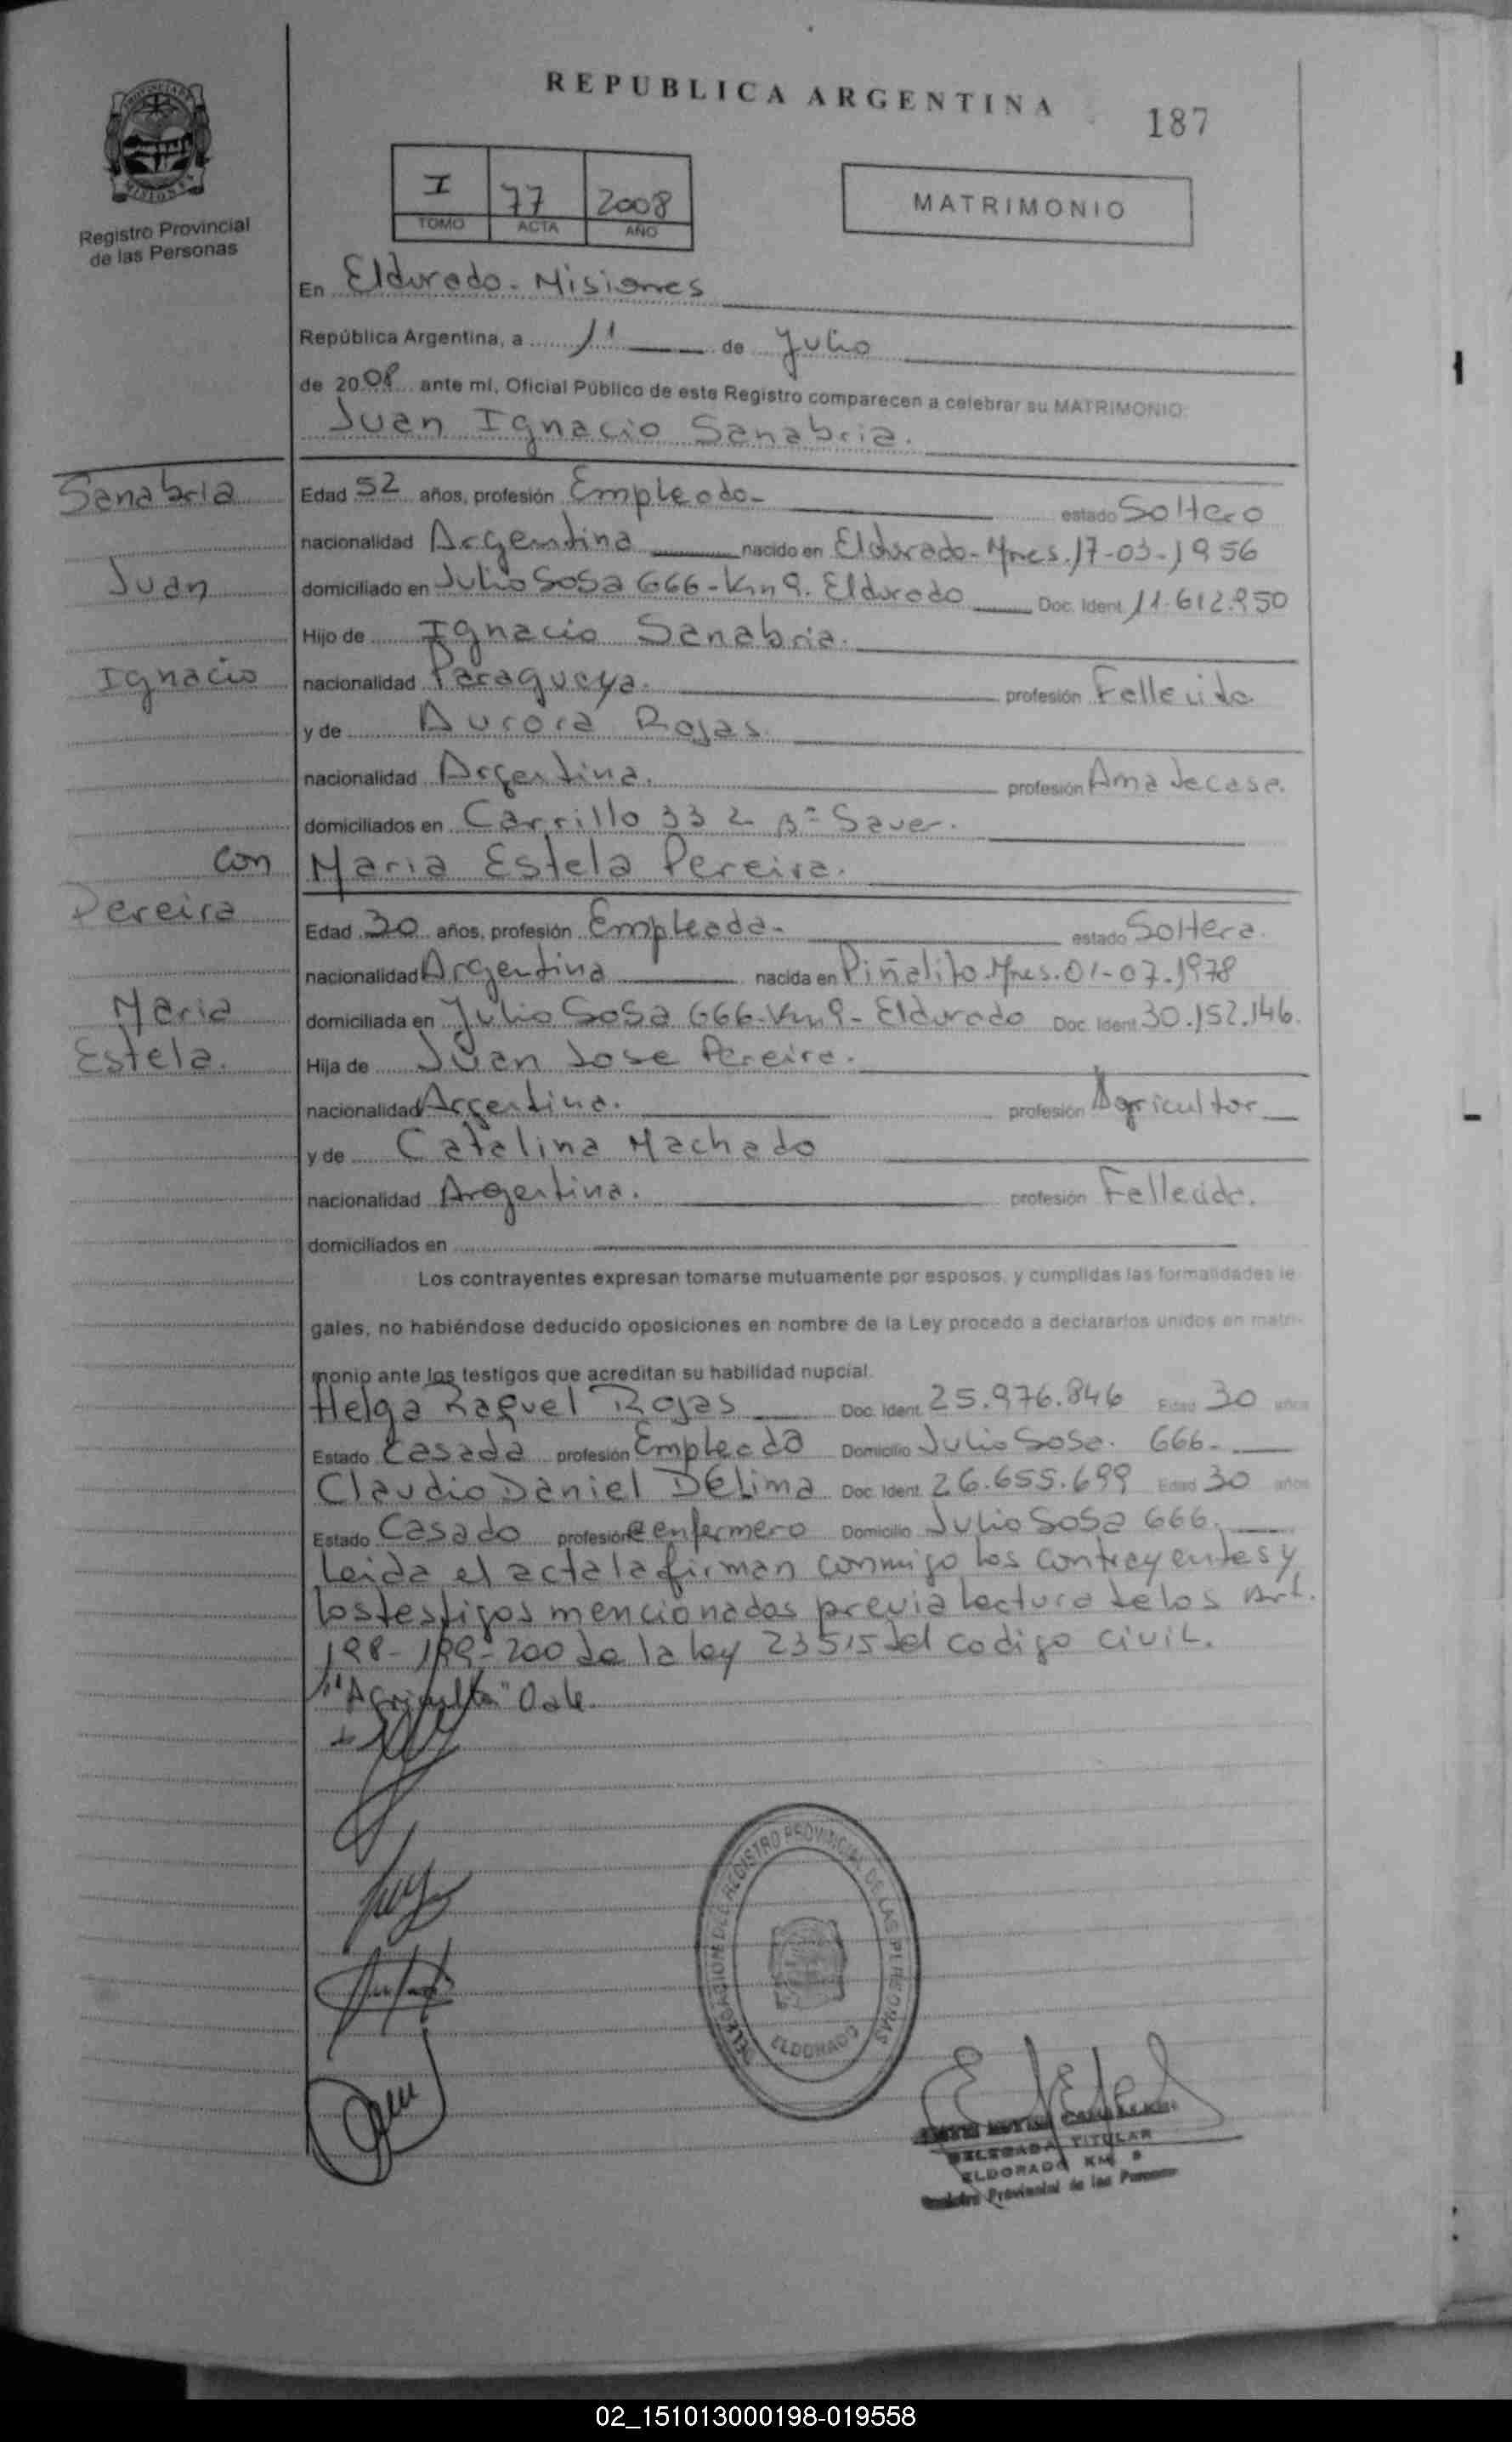 REPUBLICA ARGENTINA
187
I 77 2008
TOMO ACTA AÑO
MATRIMONIO
Registro Provincial
de las Personas
En Eldorado - Misiones
República Argentina, a 11 de Julio
de 2008 ante mí, Oficial Público de este Registro comparecen a celebrar su MATRIMONIO:
Juan Ignacio Sanabria.
Sanabria
Edad 52 años, profesión Empleado - estado Soltero
nacionalidad Argentina nacido en Eldorado - Mnes. 17-03-1956
Juan
domiciliado en Julio Sosa 666 - Km 9. Eldorado Doc. Ident. 11.612.950
Hijo de Ignacio Sanabria.
Ignacio
nacionalidad Paraguaya. profesión Fallecido
y de Aurora Rojas.
nacionalidad Argentina. profesión Ama de casa.
domiciliados en Carrillo 332 Bº Sauer.
con
Maria Estela Pereira.
Pereira
Edad 30 años, profesión Empleada - estado Soltera.
nacionalidad Argentina nacida en Piñalito Mnes. 01-07-1978
Maria
domiciliada en Julio Sosa 666 - Km 9 - Eldorado Doc. Ident. 30.152.146.
Estela.
Hija de Juan Jose Pereira.
nacionalidad Argentina. profesión Agricultor
y de Catalina Machado
nacionalidad Argentina. profesión Fallecida.
domiciliados en
Los contrayentes expresan tomarse mutuamente por esposos, y cumplidas las formalidades le-
gales, no habiéndose deducido oposiciones en nombre de la Ley procedo a declararlos unidos en matri-
monio ante los testigos que acreditan su habilidad nupcial.
Helga Raquel Rojas Doc. Ident. 25.976.846 Edad 30 años
Estado Casada profesión Empleada Domicilio Julio Sosa. 666.
Claudio Daniel DELima Doc. Ident. 26.655.699 Edad 30 años
Estado Casado profesión enfermero Domicilio Julio Sosa 666.
Leida el acta la firman conmigo los contrayentes y
los testigos mencionados previa lectura de los Art.
198-199-200 de la ley 23515 del codigo civil.
"Agricultor" Vale.
DELEGACION DEL REGISTRO PROVINCIAL DE LAS PERSONAS
ELDORADO
DELEGADA TITULAR
ELDORADO KM 9
Registro Provincial de las Personas
02_151013000198-019558